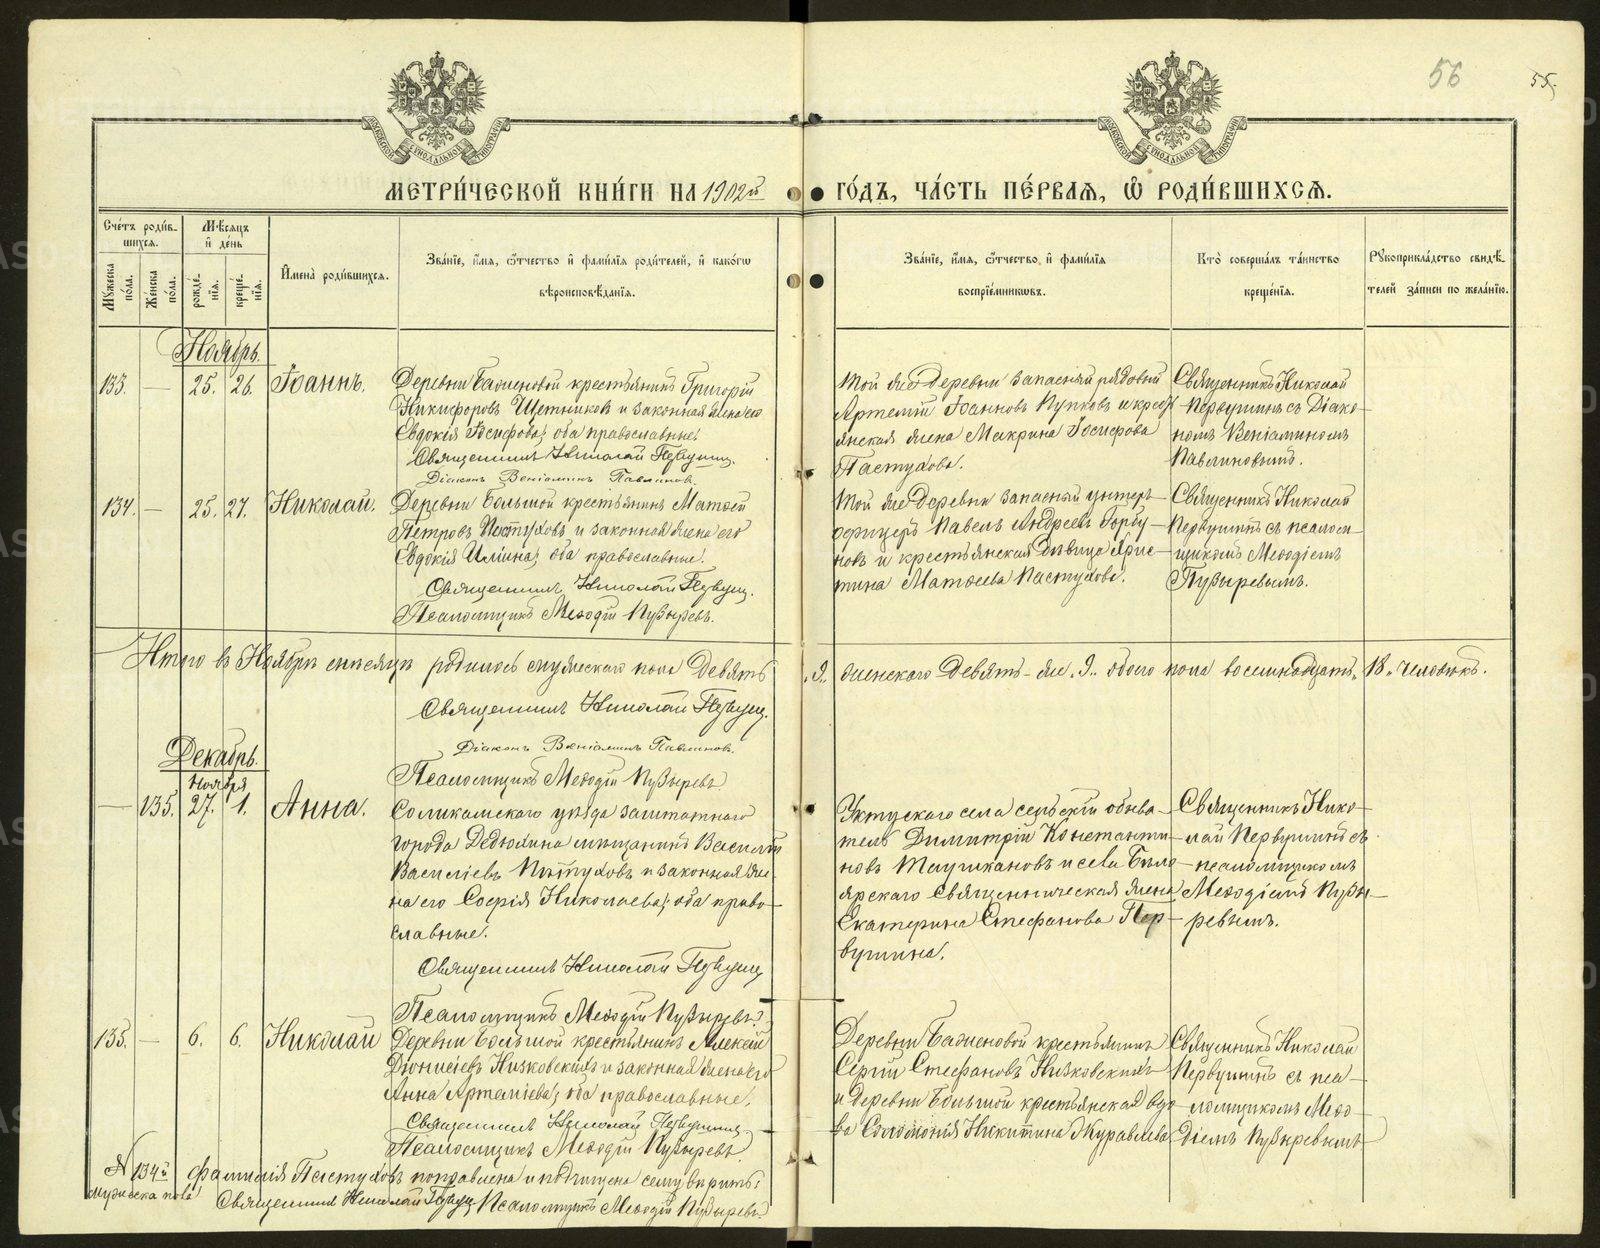 56
55.
МОСКОВСКОЙ СѴНОДАЛЬНОЙ ТИПОГРАФІИ
МОСКОВСКОЙ СѴНОДАЛЬНОЙ ТИПОГРАФІИ
МЕТРИ́ЧЕСКОЙ КНИ́ГИ НА 1902й ГО́ДЪ, ЧА́СТЬ ПЕ́РВАЯ, Ѿ РОДИ́ВШИХСЯ.
Сче́тъ роди́вшихся.
Мѣ́сяцъ и҆ де́нь
Му́жеска по́ла.
Же́нска по́ла.
рожде́нїя.
креще́нїя.
И҆мена̀ роди́вшихся.
Зва́нїе, и҆́мя, ѻ҆́тчество и҆ фами́лїя роди́телей, и҆ како́гѡ вѣроисповѣ́данїя.
Зва́нїе, и҆́мя, ѻ҆́тчество, и҆ фами́лїя воспрїе́мниковъ.
Кто̀ соверша́лъ та́инство креще́нїя.
Рꙋкоприкла́дство свидѣ́телей за́писи по жела́нїю.
Ноябрь.
133. — 25. 26. Іоаннъ.
Деревни Баженовой крестьянинъ Григорій
Никифоровъ Щетниковъ и законная жена его
Евдокія Іосифова; оба православные.
Священникъ Николай Первушинъ.
Діаконъ Веніаминъ Павлиновъ.
Той же деревни запасный рядовый
Артемій Іоанновъ Пупковъ и крестьянская жена Макрина Іосифова
Пастухова.
Священникъ Николай
Первушинъ съ Діакономъ Веніаминомъ
Павлиновымъ.
134. — 25. 27. Николай.
Деревни Большой крестьянинъ Матѳей
Петровъ Пастуховъ и законная жена его
Евдокія Илііна; оба православные.
Священникъ Николай Первушинъ.
Псаломщикъ Меѳодій Пузыревъ.
Той же деревни запасный унтеръ-
офицеръ Павелъ Андреевъ Горбуновъ и крестьянская дѣвица Христина Матѳеева Пастухова.
Священникъ Николай
Первушинъ съ псаломщикомъ Меѳодіемъ
Пузыревымъ.
Итого въ Ноябрѣ мѣсяцѣ родилось мужескаго пола Девять „9„ женскаго Девять же „9„ обоего пола восемнадцать „18„ человѣкъ.
Священникъ Николай Первушинъ.
Діаконъ Веніаминъ Павлиновъ.
Псаломщикъ Меѳодій Пузыревъ
Декабрь.
Ноября
— 135. 27. 1. Анна.
Соликамскаго уѣзда заштатнаго
города Дедюхина мѣщанинъ Василій
Васильевъ Пастуховъ и законная жена его Софія Николаева; оба православные.
Священникъ Николай Первушинъ
Псаломщикъ Меѳодій Пузыревъ.
Уктускаго села сельскій обыватель Димитрій Константиновъ Таушкановъ и села Бѣлоярскаго священническая жена
Екатерина Стефанова Первушина.
Священникъ Николай Первушинъ съ
псаломщикомъ
Меѳодіемъ Пузыревымъ.
135. — 6. 6. Николай
Деревни Большой крестьянинъ Алексѣй
Діонисіевъ Низковскихъ и законная жена его
Анна Артеміева; оба православные.
Священникъ Николай Первушинъ
Псаломщикъ Меѳодій Пузыревъ.
Деревни Баженовой крестьянинъ
Сергій Стефановъ Низковскихъ
и деревни Большой крестьянская вдова Соломонія Никитина Журавлева
Священникъ Николай
Первушинъ съ псаломщикомъ Меѳодіемъ Пузыревымъ
№ 134й мужеска пола фамилія Пастуховъ поправлена и подчищена сему вѣрить:
Священникъ Николай Первушинъ Псаломщикъ Меѳодій Пузыревъ.